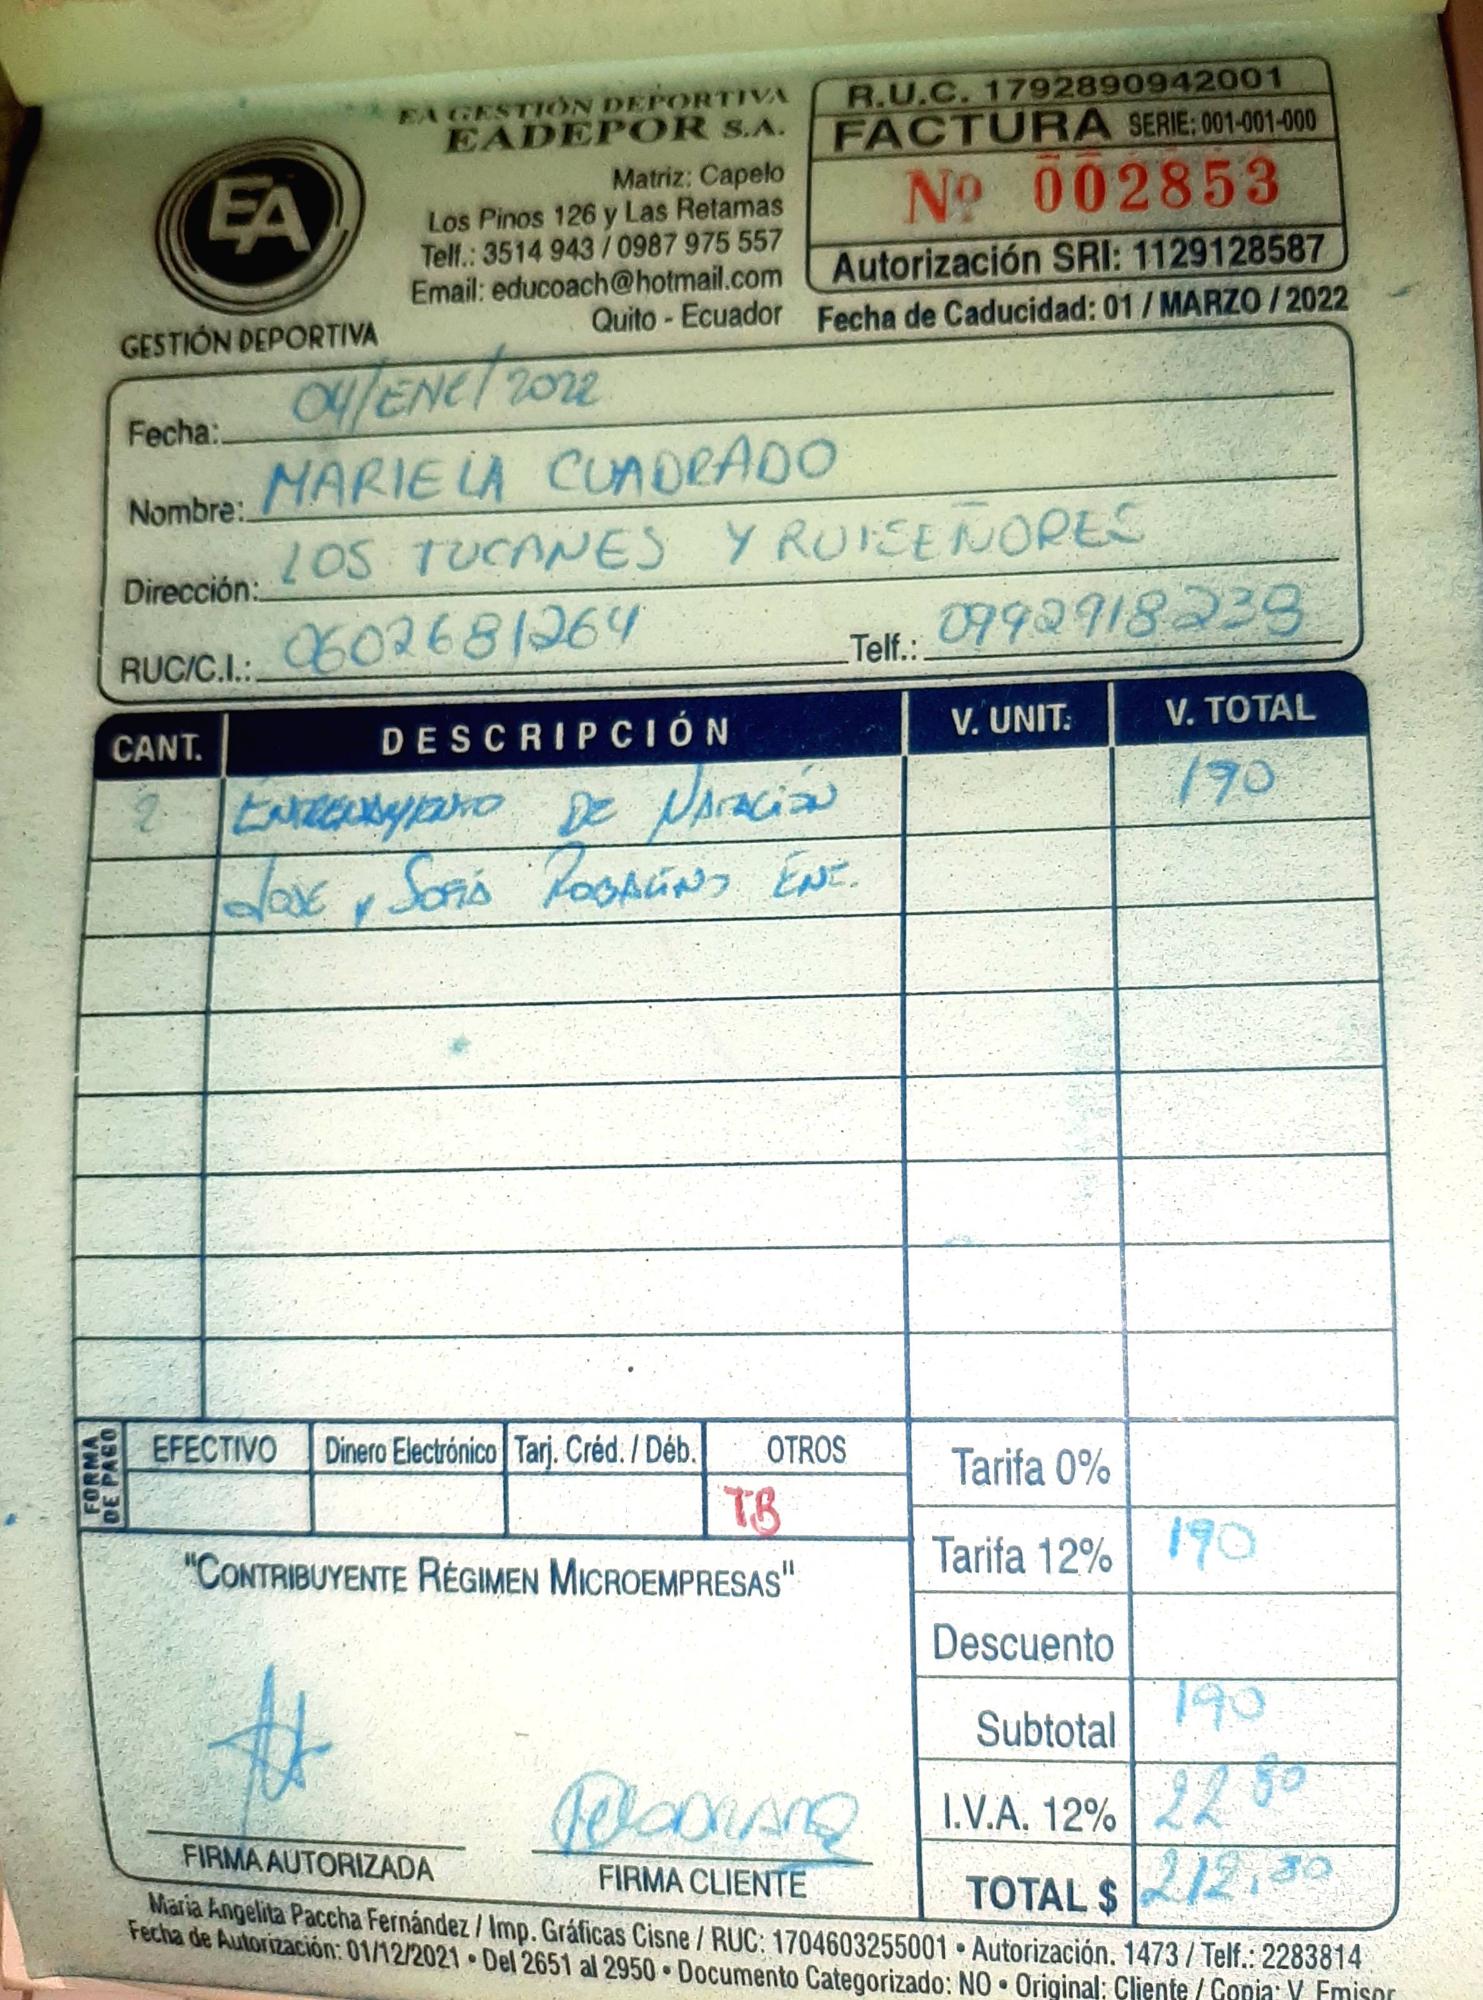 EA GESTIÓN DEPORTIVA
EADEPOR S.A.
Matriz: Capelo
Los Pinos 126 y Las Retamas
Telf.: 3514 943 / 0987 975 557
Email: educoach@hotmail.com
Quito - Ecuador
EA
GESTIÓN DEPORTIVA
R.U.C. 1792890942001
FACTURA SERIE: 001-001-000
Nº 002853
Autorización SRI: 1129128587
Fecha de Caducidad: 01 / MARZO / 2022
Fecha: 04/ENE/2022
Nombre: MARIELA CUADRADO
Dirección: LOS TUCANES Y RUISEÑORES
RUC/C.I.: 0602681264 Telf.: 0992918238
CANT. DESCRIPCIÓN V. UNIT. V. TOTAL
2 ENTRENAMIENTO DE NATACIÓN 190
JOSE Y SOFIA ROBALINO ENE.
FORMA DE PAGO
EFECTIVO Dinero Electrónico Tarj. Créd. / Déb. OTROS
TB
Tarifa 0%
Tarifa 12% 190
Descuento
Subtotal 190
I.V.A. 12% 22 80
TOTAL $ 212,80
"CONTRIBUYENTE RÉGIMEN MICROEMPRESAS"
FIRMA AUTORIZADA
FIRMA CLIENTE
Maria Angelita Paccha Fernández / Imp. Gráficas Cisne / RUC: 1704603255001 • Autorización. 1473 / Telf.: 2283814
Fecha de Autorización: 01/12/2021 • Del 2651 al 2950 • Documento Categorizado: NO • Original: Cliente / Copia: V. Emisor